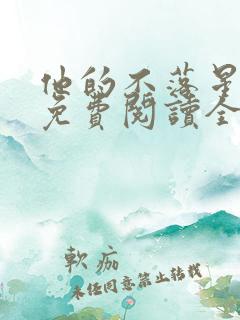 他的不落星
免費閱讀全
軟痂
未经同意禁止转载